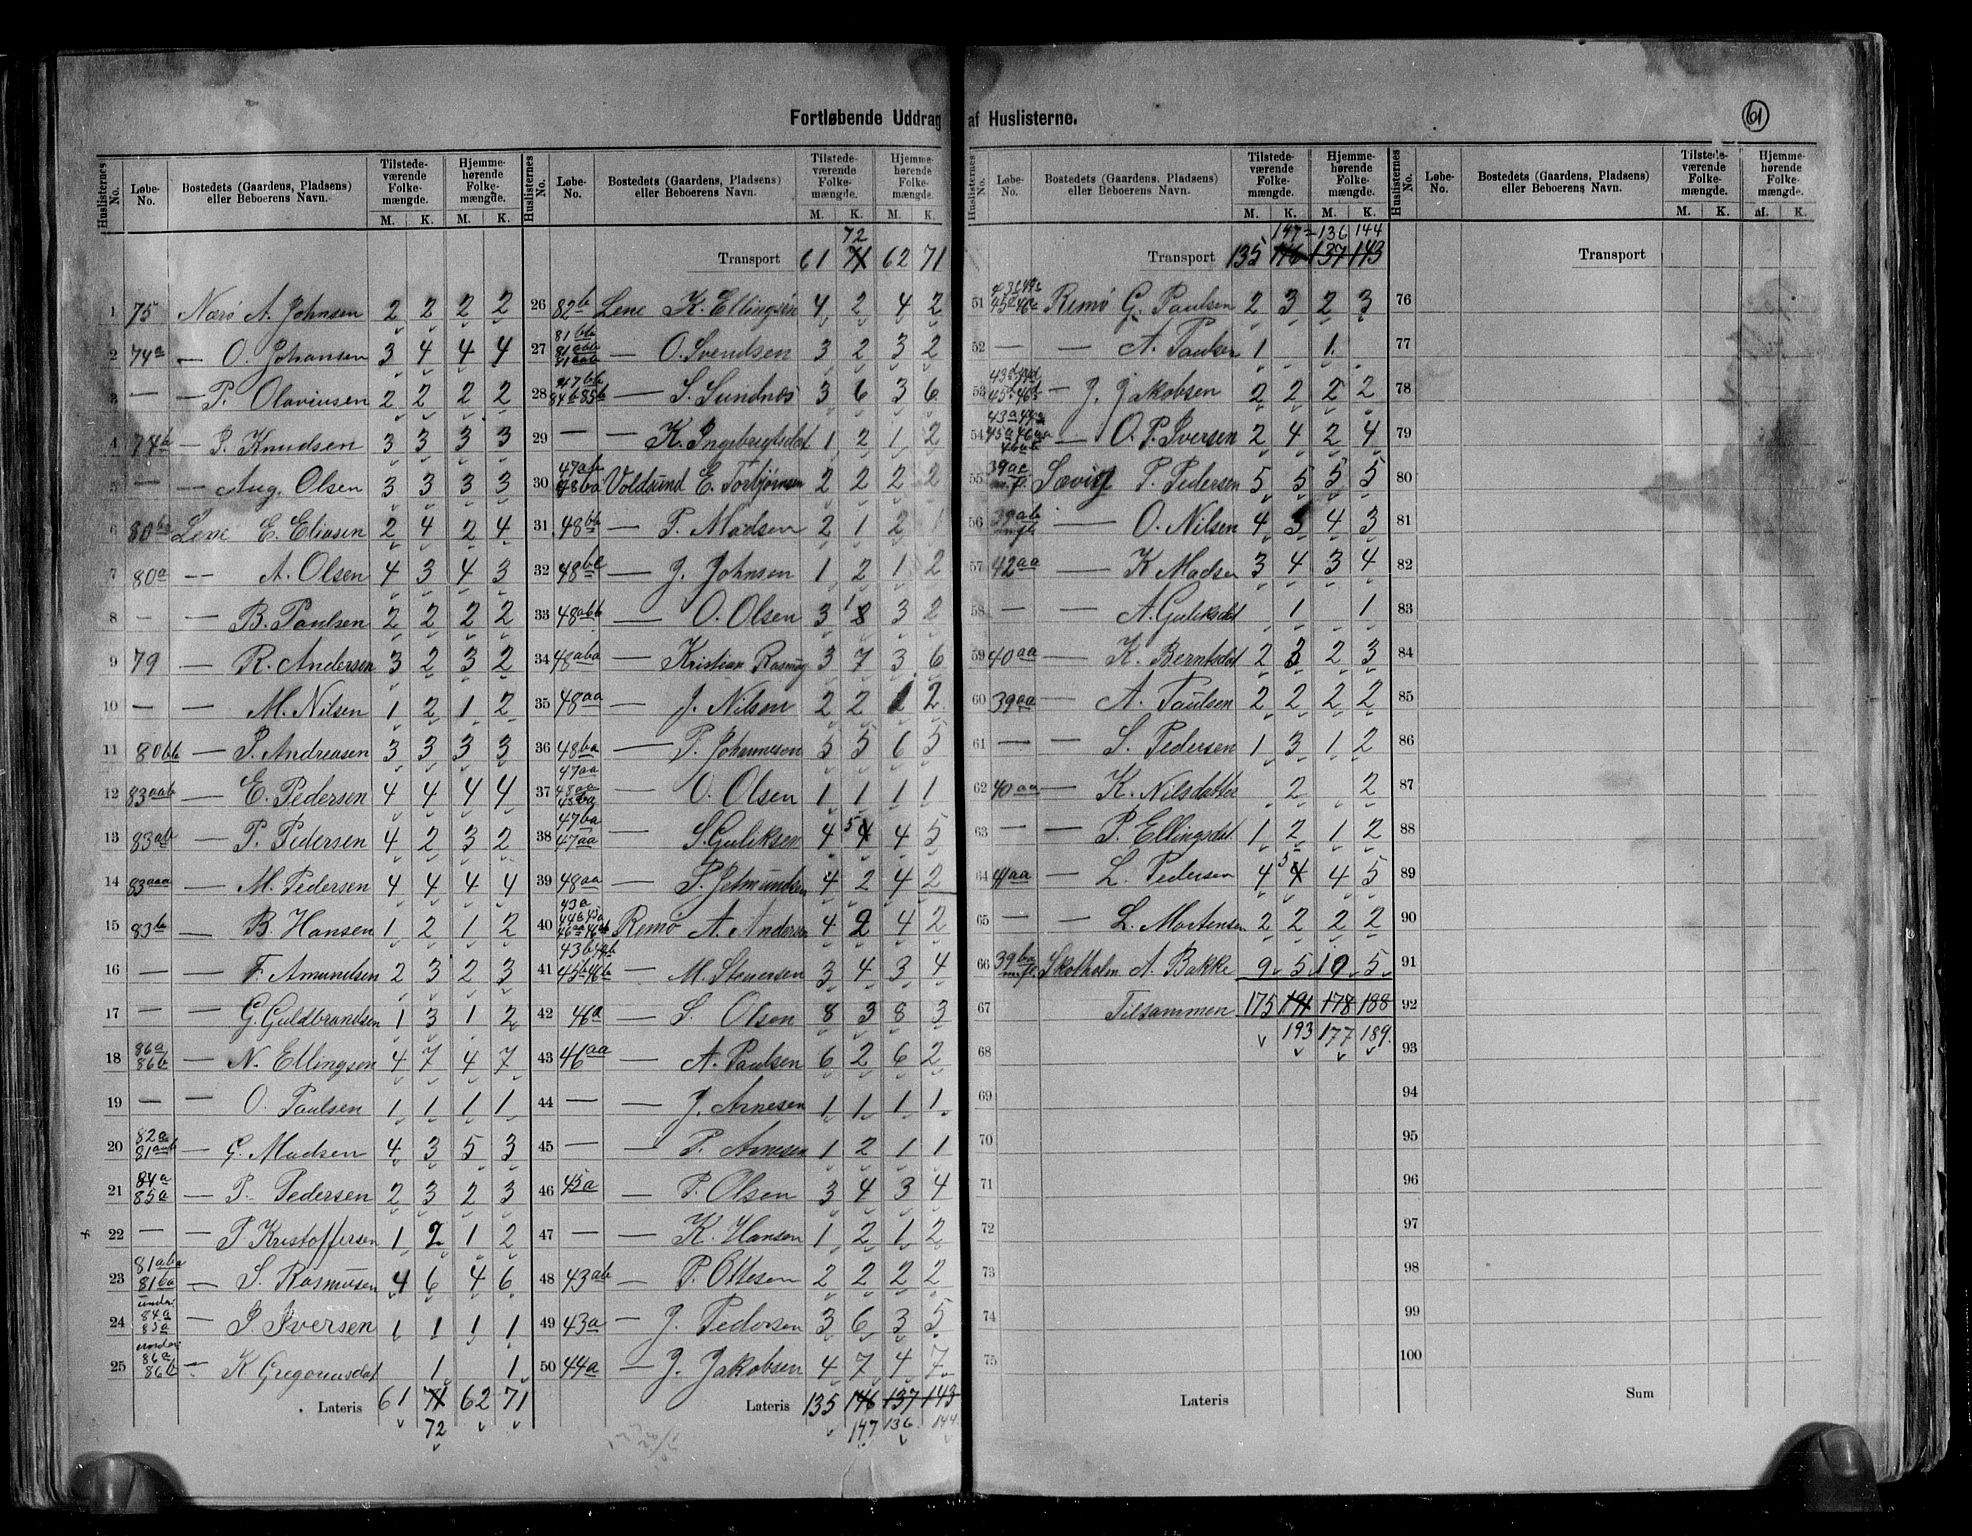 Fortløbende Uddrag af Huslisterne.
61
Huslisternes No. Løbe-No. Bostedets (Gaardens, Pladsens) eller Beboerens Navn. Tilstedeværende Folkemængde. M. K. Hjemmehørende Folkemængde. M. K.
1 75 Nærø A. Johnsen 2 2 2 2
2 74a — O. Johansen 3 4 4 4
3 — — P. Olaviusen 2 2 2 2
4 74b — P. Knudsen 3 3 3 3
5 — — Aug. Olsen 3 3 3 3
6 80ba Lene E. Eliasen 2 4 2 4
7 80a — A. Olsen 4 3 4 3
8 — — B. Paulsen 2 2 2 2
9 79 — R. Andersen 3 2 3 2
10 — — M. Nilsen 1 2 1 2
11 80bb — P. Andreasen 3 3 3 3
12 83aab — E. Pedersen 4 4 4 4
13 83ab — P. Pedersen 4 2 3 2
14 83aaa — M. Pedersen 4 4 4 4
15 83b — B. Hansen 1 2 1 2
16 — — F. Amundsen 2 3 2 3
17 — — G. Guldbrandsen 1 3 1 2
18 86a 86b — N. Ellingsen 4 7 4 7
19 — — O. Paulsen 1 1 1 1
20 82a 81aab — G. Madsen 4 3 5 3
21 84a 85a — P. Pedersen 2 3 2 3
22 — — P. Kristoffersen 1 2 1 2
23 81aba 81ba — S. Rasmusen 4 6 4 6
24 under 84a 85a — P. Iversen 1 1 1 1
25 under 86a 86b — K. Gregoriusdat 1 1
Lateris 61 71 62 71
72
Huslisternes No. Løbe-No. Bostedets (Gaardens, Pladsens) eller Beboerens Navn. Tilstedeværende Folkemængde. M. K. Hjemmehørende Folkemængde. M. K.
72
Transport 61 71 62 71
26 82b Lene K. Ellingsen 4 2 4 2
27 81bb 81abb — O. Svendsen 3 2 3 2
28 47bb 84b 85b — S. Sundnes 3 6 3 6
29 — — K. Ingebrigtsdat 1 2 1 2
30 47ab 48ba Voldsund E. Torbjørnsen 2 2 2 2
31 48bb — P. Madsen 2 1 2 1
32 48bc — J. Johnsen 1 2 1 2
33 48abb — O. Olsen 3 1 2 3 2
34 48aba — Kristian Rasmus 3 7 3 6
35 48aa — J. Nilsen 2 2 1 2
36 48ba — P. Johannesen 5 5 6 5
37 47aa 48aa — O. Olsen 1 1 1 1
38 47ba 47aa — S. Guliksen 4 5 4 4 5
39 48aa — S. Jetmundsen 4 2 4 2
40 43a Remø A. Andersen 4 2 4 2
41 43b 44b 45b 46b — M. Steversen 3 4 3 4
42 46a — S. Olsen 8 3 8 3
43 46aa — A. Paulsen 6 2 6 2
44 — — J. Arnesen 1 1 1 1
45 — — P. Arnesen 1 2 1 1
46 45a — P. Olsen 3 4 3 4
47 — — K. Hansen 1 2 1 2
48 43ab — P. Ottesen 2 2 2 2
49 43a — J. Pedersen 3 6 3 5
50 44a — J. Jakobsen 4 7 4 7
Lateris 135 146 137 143
147 136 144
Huslisternes No. Løbe-No. Bostedets (Gaardens, Pladsens) eller Beboerens Navn. Tilstedeværende Folkemængde. M. K. Hjemmehørende Folkemængde. M. K.
147 136 144
Transport 135 146 137 143
51 Remø G. Paulsen 2 3 2 3
52 — — A. Paulsen 1 1
53 — J. Jakobsen 2 2 2 2
54 — O. P. Iversen 2 4 2 4
55 39ac Sævig P. Pedersen 5 5 5 5
56 39ab — O. Nilsen 4 3 4 3
57 42aa — K. Madsen 3 4 3 4
58 — — A. Guliksdat 1 1
59 40aa — K. Berntsdat 2 3 2 3
60 39aa — A. Paulsen 2 2 2 2
61 — — S. Pedersen 1 3 1 2
62 40aa — K. Nilsdatter 2 2
63 — — P. Ellingsdat 1 2 1 2
64 41aa — L. Pedersen 4 5 4 4 5
65 — — L. Mortensen 2 2 2 2
66 39ba m.fl. Skotholm A. Bakke 9 5 10 5
67 Tilsammen 175 191 178 188
68 193 177 189.
69
70
71
72
73
74
75
Lateris
Huslisternes No. Løbe-No. Bostedets (Gaardens, Pladsens) eller Beboerens Navn. Tilstedeværende Folkemængde. M. K. Hjemmehørende Folkemængde. M. K.
Transport
76
77
78
79
80
81
82
83
84
85
86
87
88
89
90
91
92
93
94
95
96
97
98
99
100
Sum